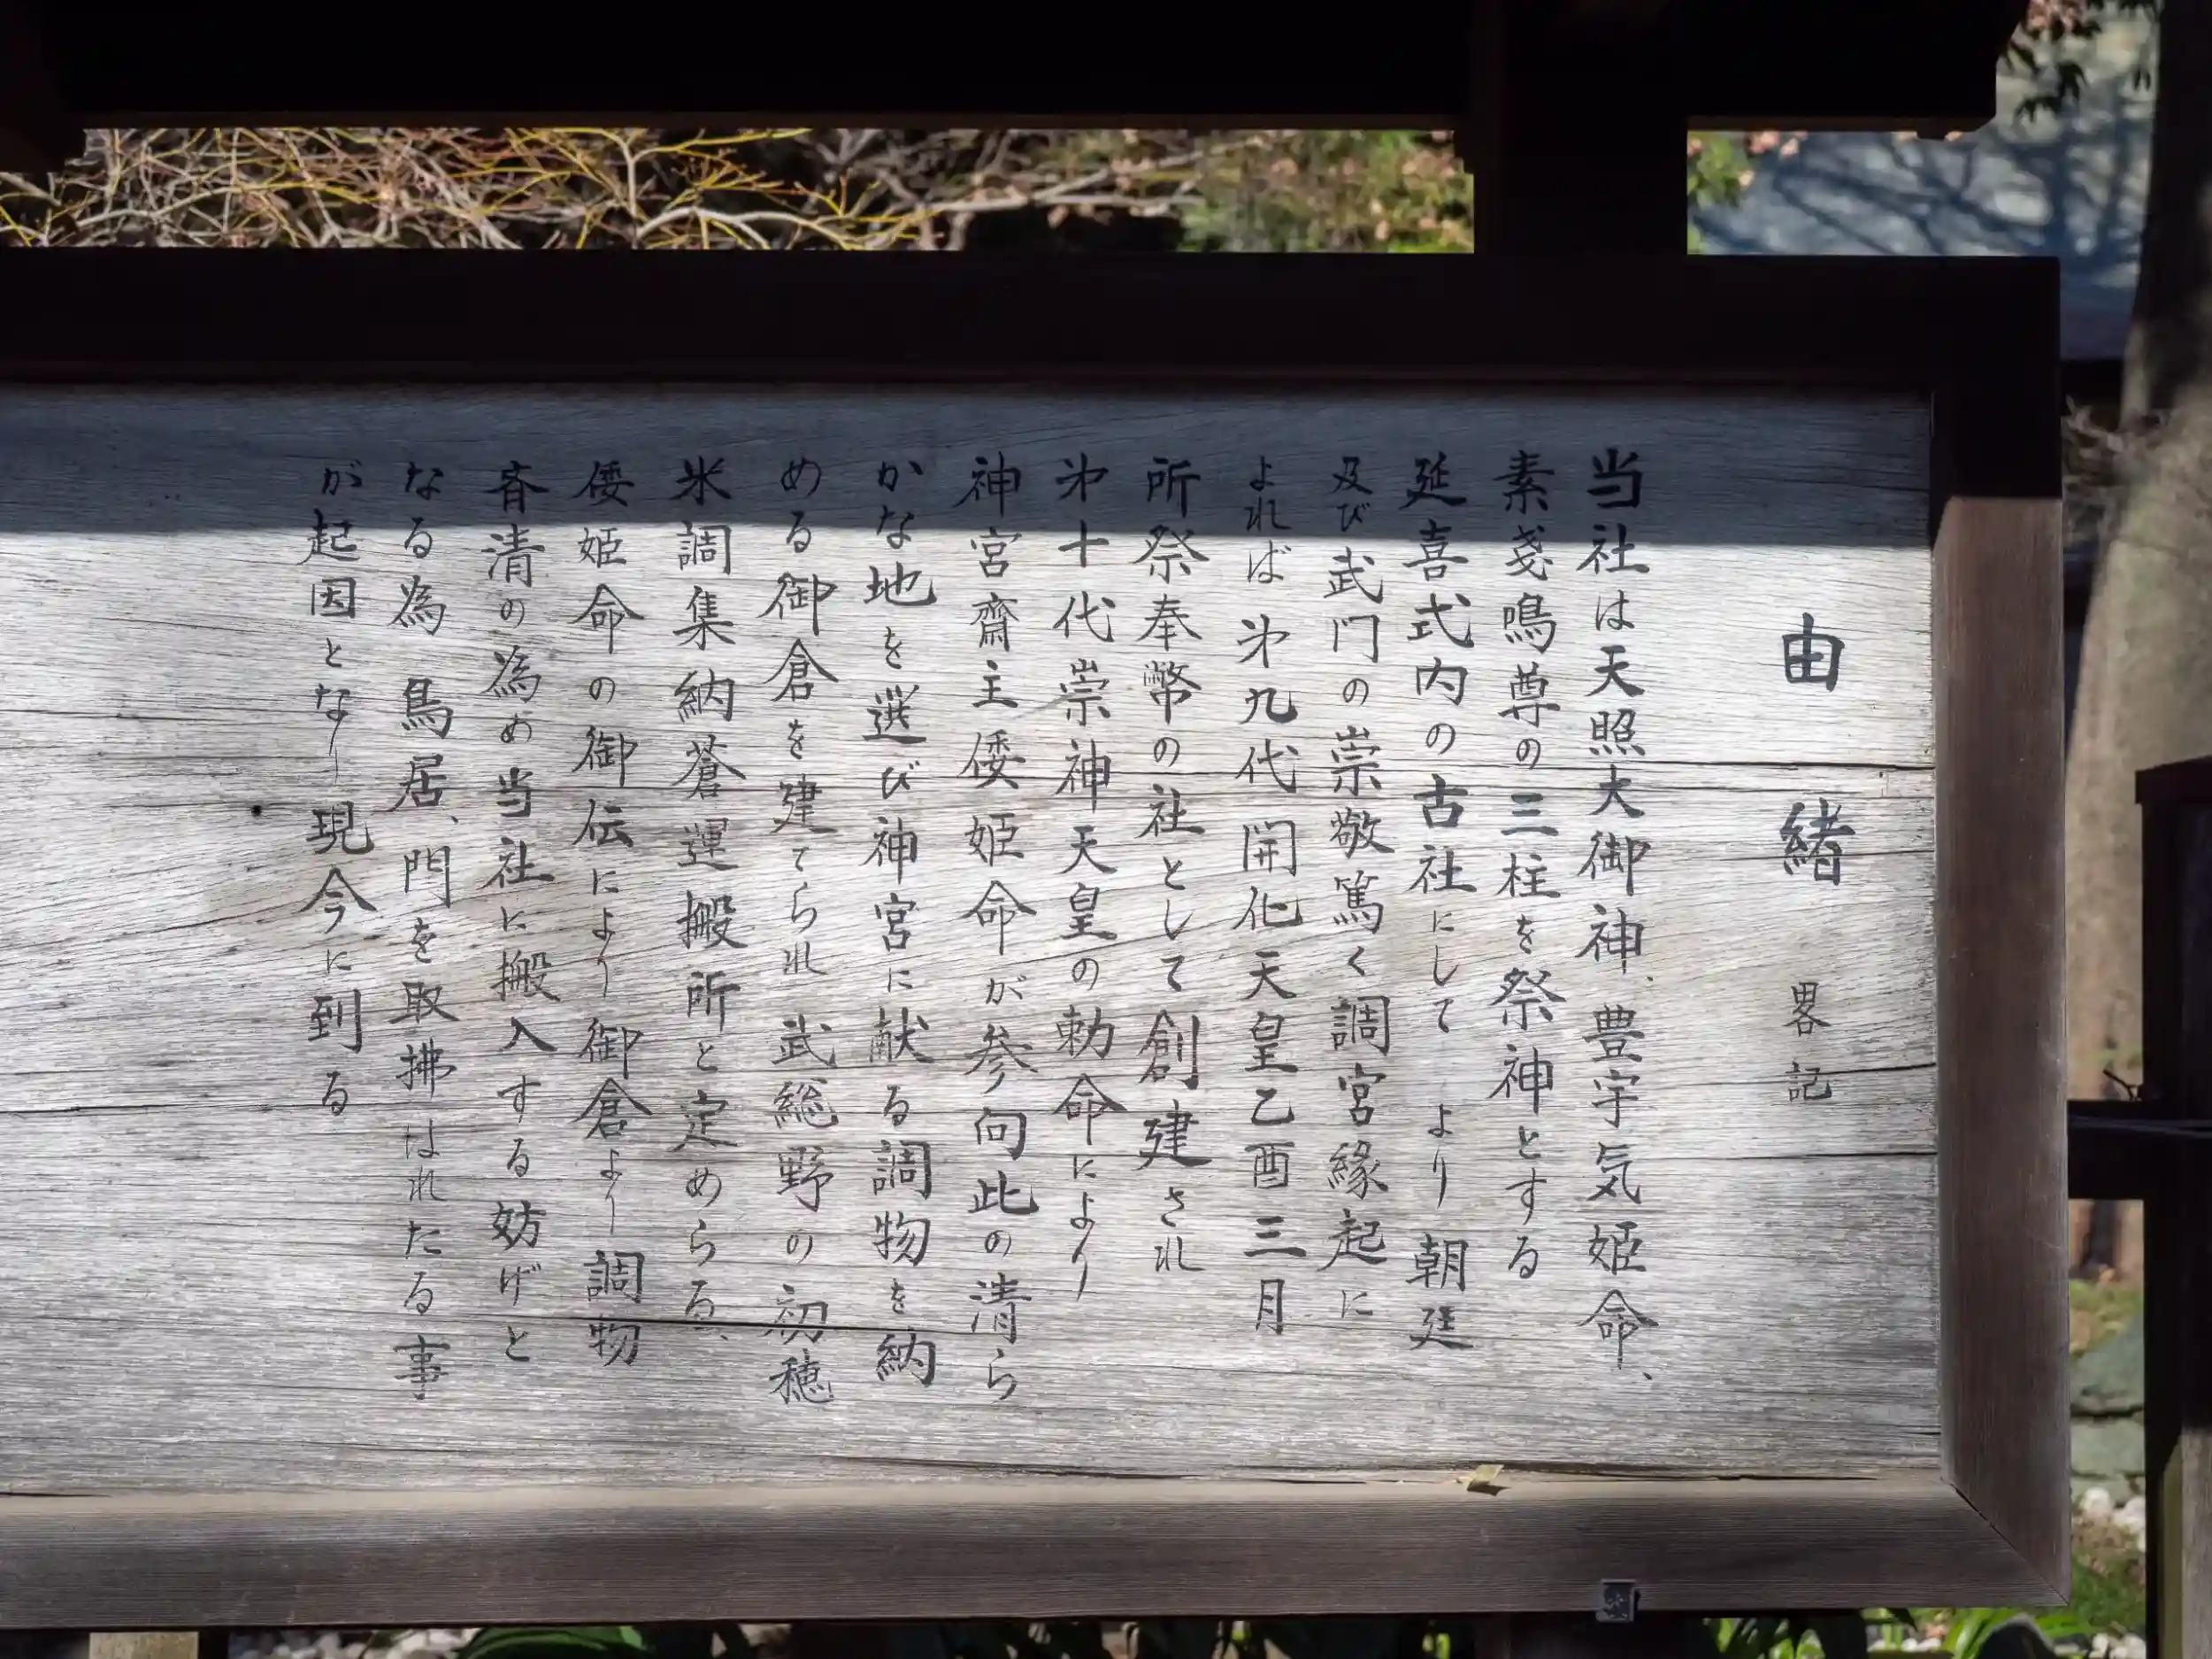 由緒 畧記
当社は天照大御神、豊宇気姫命、
素戔鳴尊の三柱を祭神とする
延喜式内の古社にして より朝廷
及び武門の崇敬篤く調宮縁起に
よれば 㐧九代 開化天皇乙酉三月
所祭奉幣の社として創建され
㐧十代崇神天皇の勅命により
神宮齋主倭姫命が参向此の清ら
かな地を選び神宮に献る調物を納
める御倉を建てられ 武総野の初穂
米調集納蒼運搬所と定めらる、
倭姫命の御伝により御倉より調物
斉清の為め当社に搬入する妨げと
なる為 鳥居、門を取拂はれたる事
が起因となり現今に到る